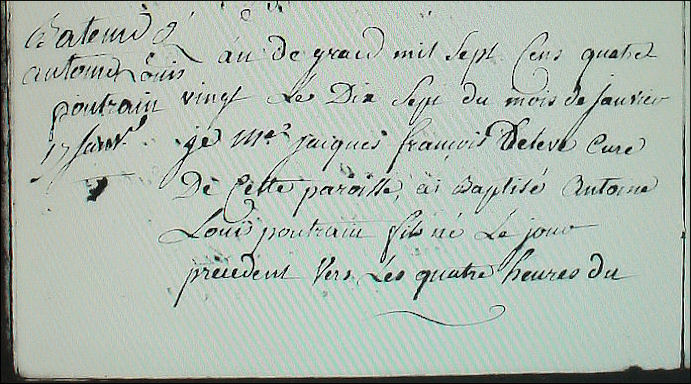 Bateme d
antoine Louis
poutrain
17 Janvr
L'an de grace mil sept Cens quatre
vingt Le Dix Sept du mois de janvier
je Me jacques françois Deleve Curé
De Cette paroisse, ai Baptisé Antoine
Louis poutrain fils né Le jour
precedent Vers Les quatre heures du